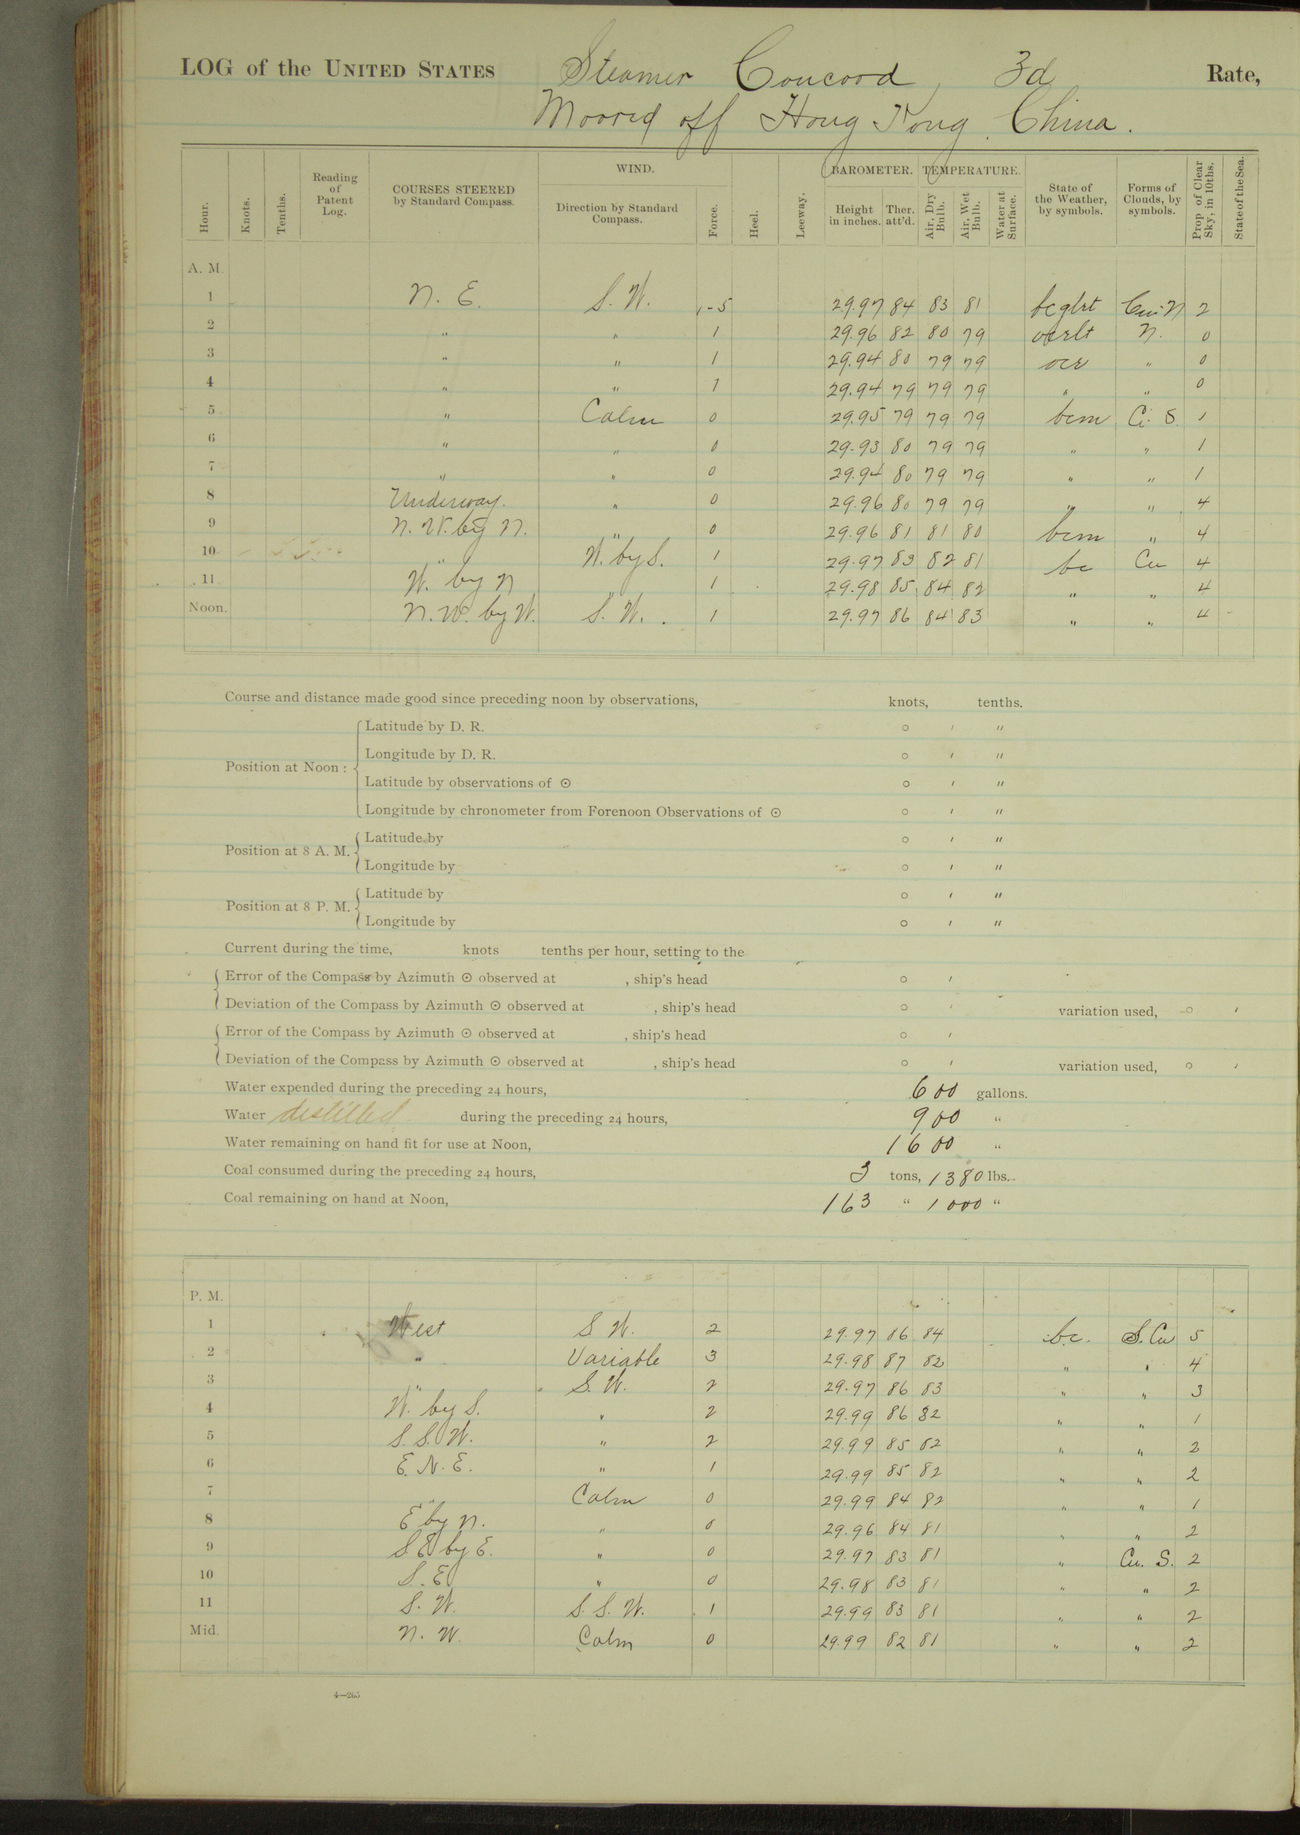 LOG of the UNITED STATES Steamer Concord, 3d Rate,
Moored off Hong Kong China.
Hour. Knots. Tenths. Reading of Patent Log. COURSES STEERED by Standard Compass. WIND. Direction by Standard Compass. Force. Heel. Leeway. BAROMETER. Height in inches. Ther. att'd. TEMPERATURE. Air, Dry Bulb. Air, Wet Bulb. Water at Surface. State of the Weather, by symbols. Forms of Clouds, by symbols. Prop of Clear Sky, in 10ths. State of the Sea.
A. M.
1 N. E. S. W. 1-5 29.97 84 83 81 bcglrt Cu-N 2
2 " " 1 29.96 82 80 79 ocrlt N. 0
3 " " 1 29.94 80 79 79 ocr " 0
4 " " 1 29.94 79 79 79 " " 0
5 " Calm 0 29.95 79 79 79 bcm Ci. S. 1
6 " " 0 29.93 80 79 79 " " 1
7 " " 0 29.94 80 79 79 " " 1
8 Underway. " 0 29.96 80 79 79 " " 4
9 N. W. by N. " 0 29.96 81 81 80 bcm " 4
10 " W. by S. 1 29.97 83 82 81 bc Cu 4
11 W. by N " 1 29.98 85 84 82 " " 4
Noon. N. W. by W. S. W. 1 29.97 86 84 83 " " 4
Course and distance made good since preceding noon by observations, knots, tenths.
Position at Noon: Latitude by D. R. ° ′ ″
Longitude by D. R. ° ′ ″
Latitude by observations of ☉ ° ′ ″
Longitude by chronometer from Forenoon Observations of ☉ ° ′ ″
Position at 8 A. M. Latitude by ° ′ ″
Longitude by ° ′ ″
Position at 8 P. M. Latitude by ° ′ ″
Longitude by ° ′ ″
Current during the time, knots tenths per hour, setting to the
Error of the Compass by Azimuth ☉ observed at , ship's head ° ′
Deviation of the Compass by Azimuth ☉ observed at , ship's head ° ′ variation used, ° ′
Error of the Compass by Azimuth ☉ observed at , ship's head ° ′
Deviation of the Compass by Azimuth ☉ observed at , ship's head ° ′ variation used, ° ′
Water expended during the preceding 24 hours, 600 gallons.
Water distilled during the preceding 24 hours, 900 "
Water remaining on hand fit for use at Noon, 1600 "
Coal consumed during the preceding 24 hours, 3 tons, 1380 lbs.
Coal remaining on hand at Noon, 163 " 1000 "
P. M.
1 West S. W. 2 29.97 86 84 bc. S. Cu 5
2 " Variable 3 29.98 87 82 " " 4
3 " S. W. 2 29.97 86 83 " " 3
4 W. by S. " 2 29.99 86 82 " " 1
5 S. S. W. " 2 29.99 85 82 " " 2
6 E. N. E. " 1 29.99 85 82 " " 2
7 " Calm 0 29.99 84 82 " " 1
8 E by N. " 0 29.96 84 81 " " 2
9 S E by E. " 0 29.97 83 81 " Cu. S. 2
10 S. E " 0 29.98 83 81 " " 2
11 S. W. S. S. W. 1 29.99 83 81 " " 2
Mid. N. W. Calm 0 29.99 82 81 " " 2
4—265